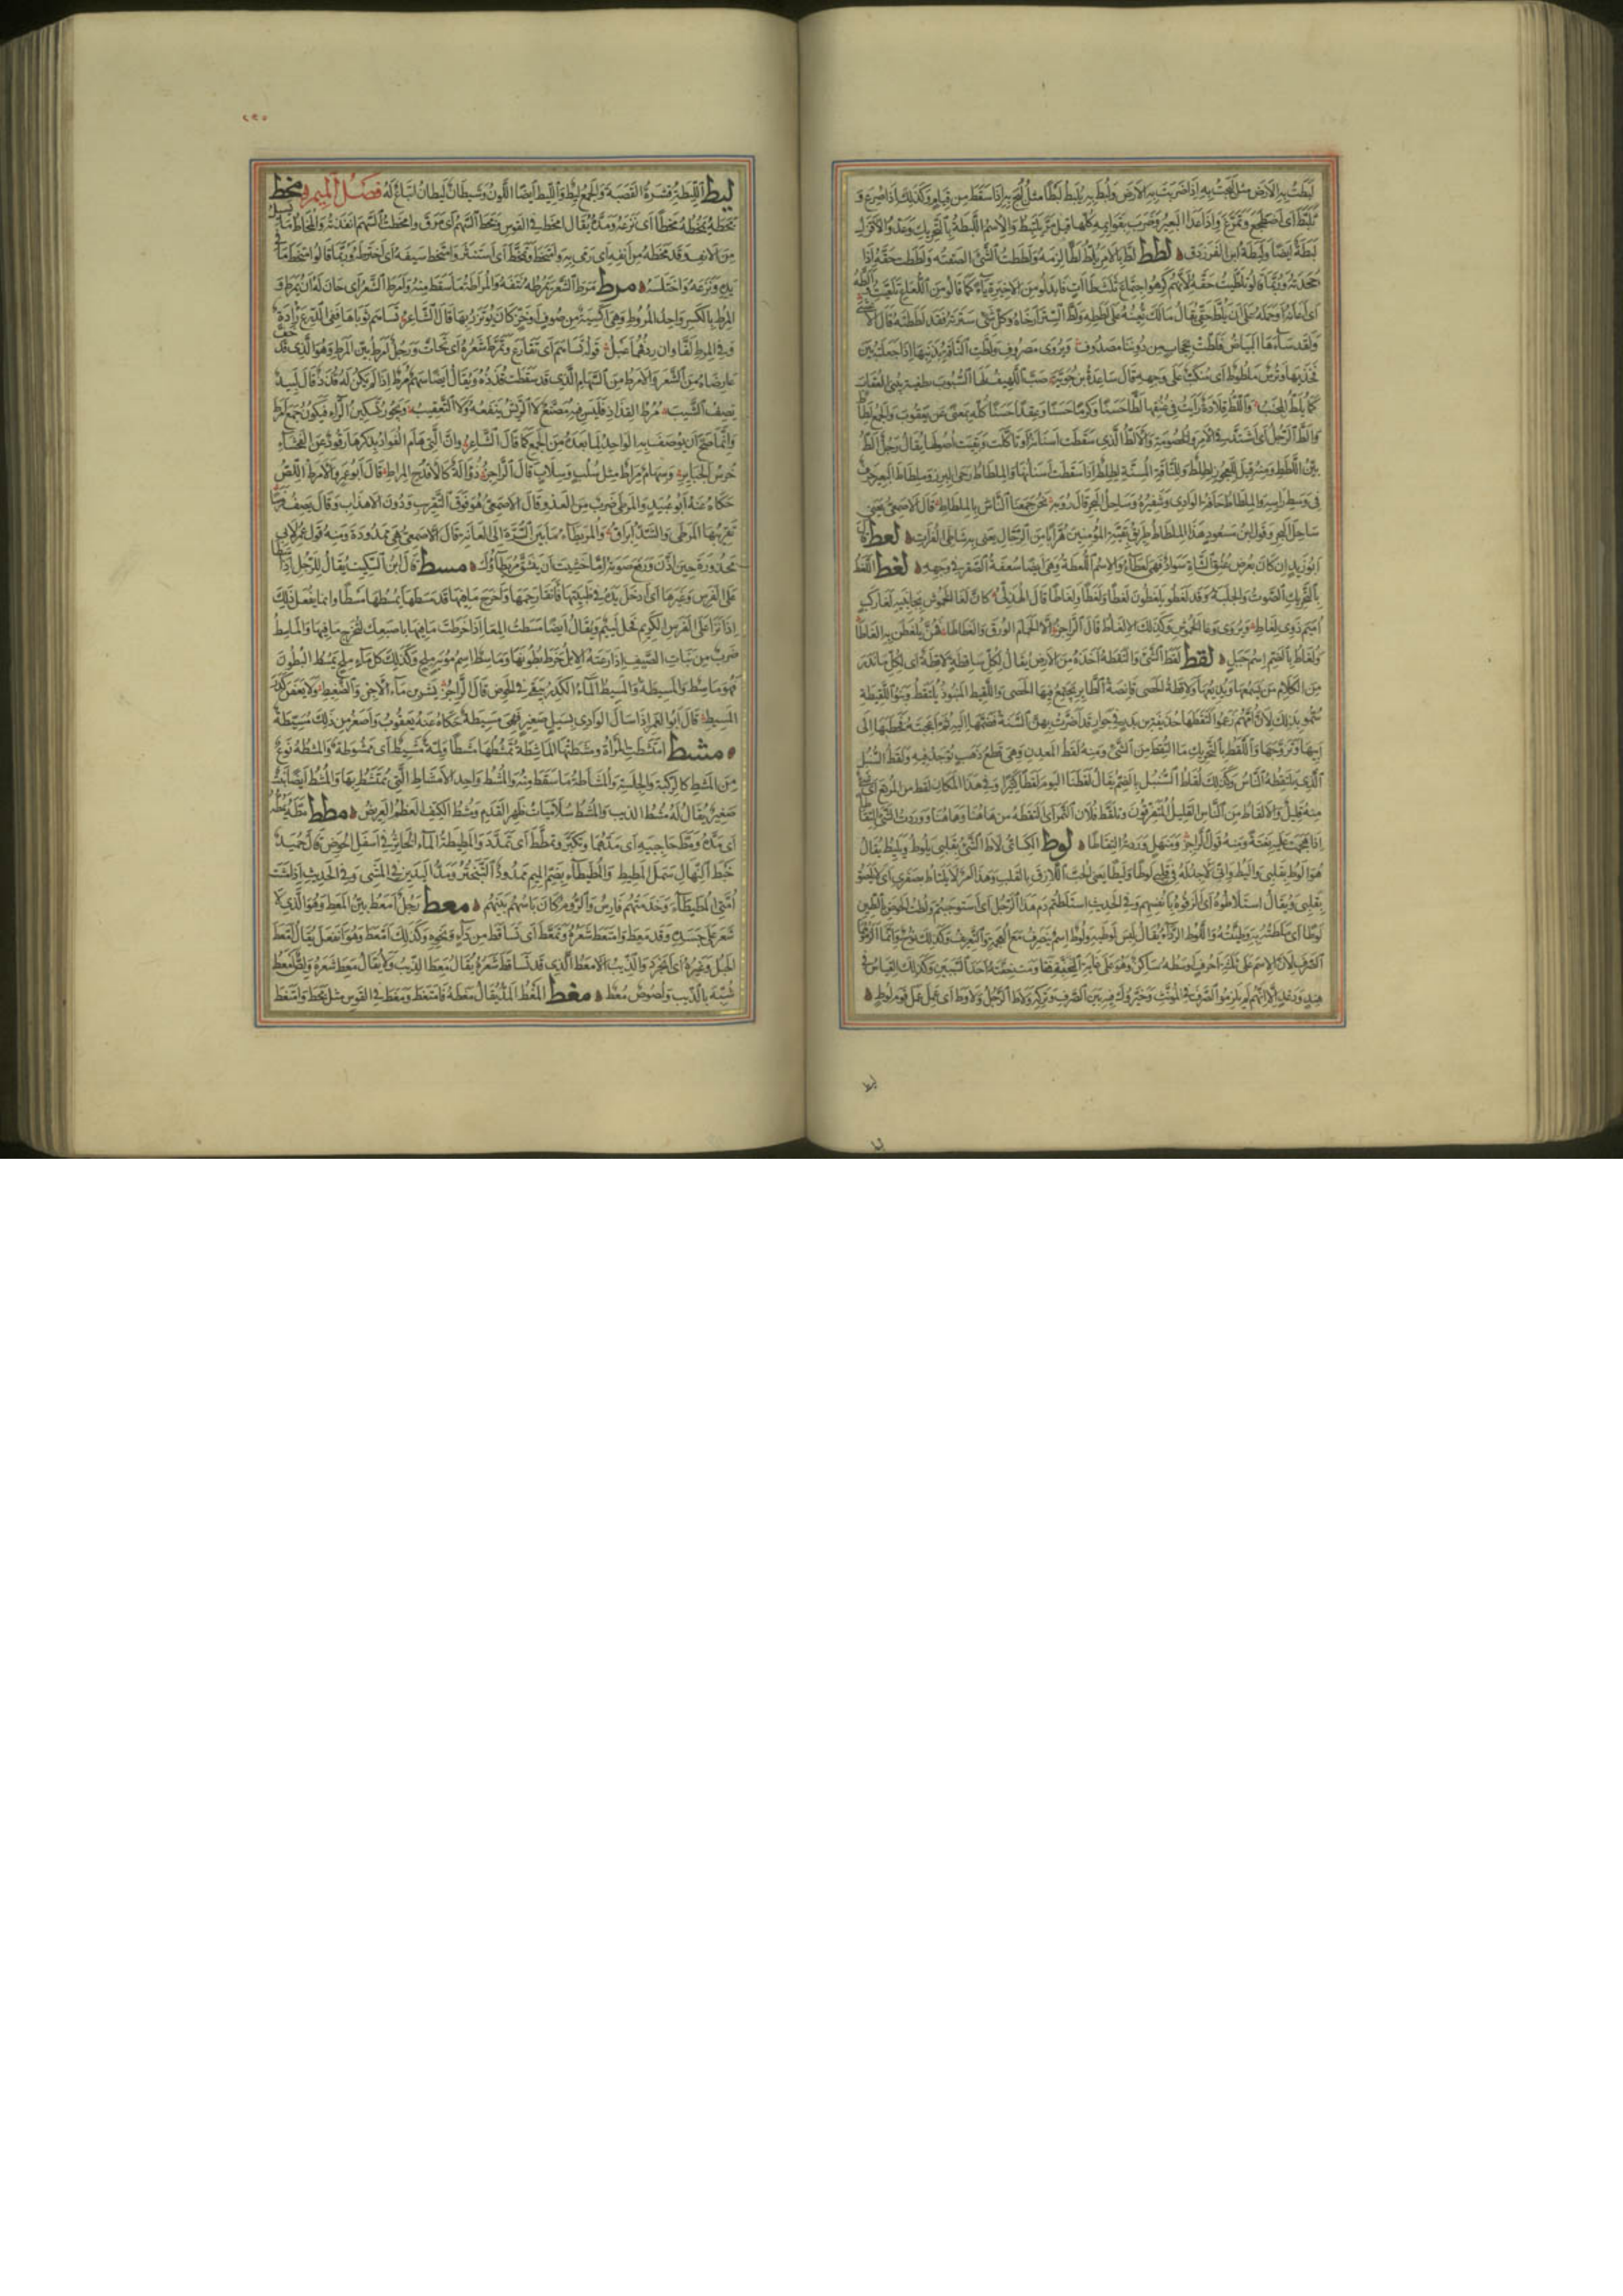 لَبَطْتُ بِهِ الأرضَ مثل لَبَجْتُ بِهِ إذا ضربتَ به الأرض ولُبِطَ به يُلبَطُ لبطا مثل لُبِجَ به إذا سقط من قيام وكذلك إذا صُرِعَ و
تلبّط أى اضطجع وتمرّغ وإذا عدا البعير وضرب بقوائمه كلها قيل مرّ يلتبط والاسم اللبطة بالتحريك وعدو الأقزل
لبطة أيضا ولبطة ابن الفرزدق لطط لطّ بالأمر يلطّ لطّا لزمه ولططت الشئ ألصقته ولططت حقه إذا
جحدته وربما قالوا تلطيت حقه لأنهم كرهوا اجتماع ثلث طاآت فابدلوا من الأخيرة ياء كما قالوا من اللعاع تلعيت وألطه
أى أعانه أو حمله على أن يلط حقى يقال مالك تعينه على لططه ولط الستر أرخاه وكل شئ سترته فقد لططته قال الأعشى
ولقد ساءها البياض فلطت بحجاب من دوننا مصدوف ويروى مصروف ولطت الناقة بذنبها إذا جعلته بين
فخذيها وترس ملطوط أى منكب على وجهه قال ساعدة بن جوية صبّ اللهيف لها السبوب بطغية تنبى العقاب
كما يلط المجنب واللط قلادة رأيت فى عنقها لطا حسنا وكرما حسنا وعقدا حسنا كله بمعنى عن يعقوب والجمع لطاط
وألط الرجل أى اشتد فى الأمر والخصومة والألط الذى سقطت أسنانه أو تأكلت وبقيت أصولها يقال رجل ألط
بين اللطط ومنه قيل للعجوز لطلط وللناقة المسنة لطلط إذا سقطت أسنانها والملطاط رحى البزر وملطاط البعير حرف
فى وسط رأسه والملطاط حافة الوادى وشفيره وساحل البحر قال رؤبة نحن جمعنا الناس بالملطاط قال الأصمعى يعنى
ساحل البحر وقول ابن مسعود هذا الملطاط طريق بقية المؤمنين هرّابا من الدجال يعنى به شاطئ الفرات لعط قال
أبو زيد إن كان بعرض عنق الشاة سواد فهى لعطاء والاسم اللعطة وهى أيضا سفعة الصقر فى وجهه لغط اللغط
بالتحريك الصوت والجلبة وقد لغطوا يلغطون لغطا ولغطا ولغاطا قال الهذلى كأن لغا الخموش بجانبيه لغا ركب
أميم ذوى لغاط ويروى وغا الخموش وكذلك الإلغاط قال الراجز إلا الحمام الورق والغطاطا فهنّ يلغطن به إلغاطا
ولغاط بالضم اسم جبل لقط لقط الشئ والتقطه أخذه من الأرض يقال لكل ساقطة لاقطة أى لكل ما ندر
من الكلام من يسمعها ويذيعها ولاقطة الحصى قانصة الطاير يجتمع فيها الحصى واللقيط المنبوذ يلتقط وبنو اللقيطة
سموا بذلك لأن أمهم زعموا التقطها حذيفة بن بدر فى جوار قد أضرت بهن السنة فضمها إليه ثم أعجبته فخطبها إلى
أبيها وتزوجها واللقط بالتحريك ما التقط من الشئ ومنه لقط المعدن وهى قطع ذهب توجد فيه ولقط السنبل
الذى يلتقطه الناس وكذلك لقاط السنبل بالضم يقال لقطنا اليوم لقطا كثيرا وفى هذا المكان لقط من المرتع أى شئ
منه قليل والألقاط من الناس القليل المتفرقون وتلقط فلان التمر أى التقطه من هاهنا وهاهنا ووردت الشئ التقاطا
إذا هجمت عليه بغتة ومنه قول الراجز ومنهل وردته التقاطا لوط الكسائى لاط الشئ بقلبى يلوط ويليط يقال
هو ألوط بقلبى وأليط وإنى لأجد له فى قلبى لوطا وليطا يعنى الحب اللازق بالقلب وهذا أمر لا يلتاط بصفرى أى لا يلصق
بقلبى ويقال استلاطوه أى ألزقوه بأنفسهم وفى الحديث استلطتم دم هذا الرجل أى استوجبتم ولطت الحوض بالطين
لوطا أى ملطته به وطينته واللوط الرداء يقال لبس لوطيه ولوط اسم ينصرف مع العجمة والتعريف وكذلك نوح وإنما ألزموهما
الصرف لأن الاسم على ثلثة أحرف أوسطه ساكن وهو على غاية الخفة فقاومت خفته أحد السببين وكذلك القياس فى
هند ودعد إلا أنهم لم يلزموا الصرف فى المؤنث وخيروك فيه بين الصرف وتركه ولاط الرجل ولاوط أى عمل عمل قوم لوط
ليط الليطة قشرة القصبة والجمع ليط والليط أيضا اللون وشيطان ليطان اتباع له فصل الميم مخط
مخطه يمخطه مخطا أى نزعه ومده يقال امخط فى القوس ومخط السهم أى مرق وامخطت السهم أنفذته والمخاط ما يسيل
من الأنف وقد مخطه من أنفه أى رمى به وامتخط وتمخط أى استنثر وامتخط سيفه أى اخترطه وربما قالوا امتخط ما فى
يده ونزعه واختلسه مرط مرط الشعر يمرطه نتفه والمراطة ما سقط منه وأمرط الشعر أى حان له أن يمرط و
المرط بالكسر واحد المروط وهى أكسية من صوف أو خز كان يؤتزر بها قال الشاعر تساهم ثوباها ففى الدرع رأدة
وفى المرط لفاوان ردفهما عبل قوله تساهم أى تقارع وتمرط شعره أى تحات ورجل أمرط بين المرط وهو الذى قد خف
عارضاه من الشعر والأمرط من السهام الذى قد سقطت قذذه ويقال أيضا سهم مرط إذا لم يكن له قذذ قال لبيد
يصف الشيب مرط القذاذ فليس فيه مصنع لا الريش ينفعه ولا التعقيب ويجوز تسكين الراء فيكون جمع أمرط
وإنما صح أن يوصف به الواحد لما بعده من الجمع كما قال الشاعر وإن التى هام الفؤاد بذكرها رقود عن الفحشاء
خرس الجباير وسهام مراط مثل سلب وسلاب قال الراجز ذو آلة كالأقدح المراط قال أبو عمرو والأمرط اللص
حكاه عنه أبو عبيد والمرطى ضرب من العدو قال الأصمعى هو فوق التقريب ودون الإهذاب وقال يصف فرسا
تقريبها المرطى والشد إبراق والمريطاء ما بين السرة إلى العانة قال الأصمعى هى ممدودة ومنه قول عمر لأبى
محذورة حين أذن ورفع صوته أما خشيت أن ينشق مريطاؤك مسط قال ابن السكيت يقال للرجل إذا سطا
على الفرس وغيرها أى أدخل يده فى ظبيتها فأنقا رحمها وأخرج ما فيها قد مسطها يمسطها مسطا وإنما يفعل ذلك
إذا نزا على الفرس الكريم فحل لئيم ويقال أيضا مسطت المعا إذا خرطت ما فيها باصبعك لتخرج ما فيها والماسط
ضرب من نبات الصيف إذا رعته الإبل خرط بطونها وماسط اسم مويه ملح وكذلك كل ماء ملح يمسط البطون
فهو ماسط والمسيطة والمسيط الماء الكدر يبقى فى الحوض قال الراجز يشربن ماء الآجن والضغيط ولا يعفن كدر
المسيط قال أبو الغمر إذا سال الوادى بسيل صغير فهى مسيطة حكاه عنه يعقوب وأصغر من ذلك مسيطة
مشط امتشطت المرأة ومشطتها الماشطة تمشطها مشطا ولمة مشيط أى ممشوطة والمشطة نوع
من المشط كالركبة والجلسة والمشاطة ما سقط منه والمشط واحد الأمشاط التى يمتشط بها والمشط أيضا نبت
صغير يقال له مشط الذيب والمشط سلاميات ظهر القدم ومشط الكتف العظم العريض مطط مطه يمطه
أى مده ومط حاجبيه أى مدهما وتكبر وتمطط أى تمدد والمطيطة الماء الخاثر فى أسفل الحوض قال حميد
خبط النهال سمل المطيط والمطيطاء بضم الميم ممدود التبختر ومد اليدين فى المشى وفى الحديث إذا مشت
أمتى المطيطاء وخدمتهم فارس والروم كان بأسهم بينهم معط رجل أمعط بين المعط وهو الذى لا
شعر على جسده وقد معط وامتعط شعره وتمعط أى تساقط من داء ونحوه وكذلك امعط وهو انفعل يقال امعط
الحبل وغيره أى انجرد والذيب الأمعط الذى قد تساقط شعره يقال معط الذيب ولا يقال معط شعره ولص أمعط
شبه بالذيب ولصوص معط مغط المغط المد يقال مغطه فامتغط ومغط فى القوس مثل مخط وامتغط